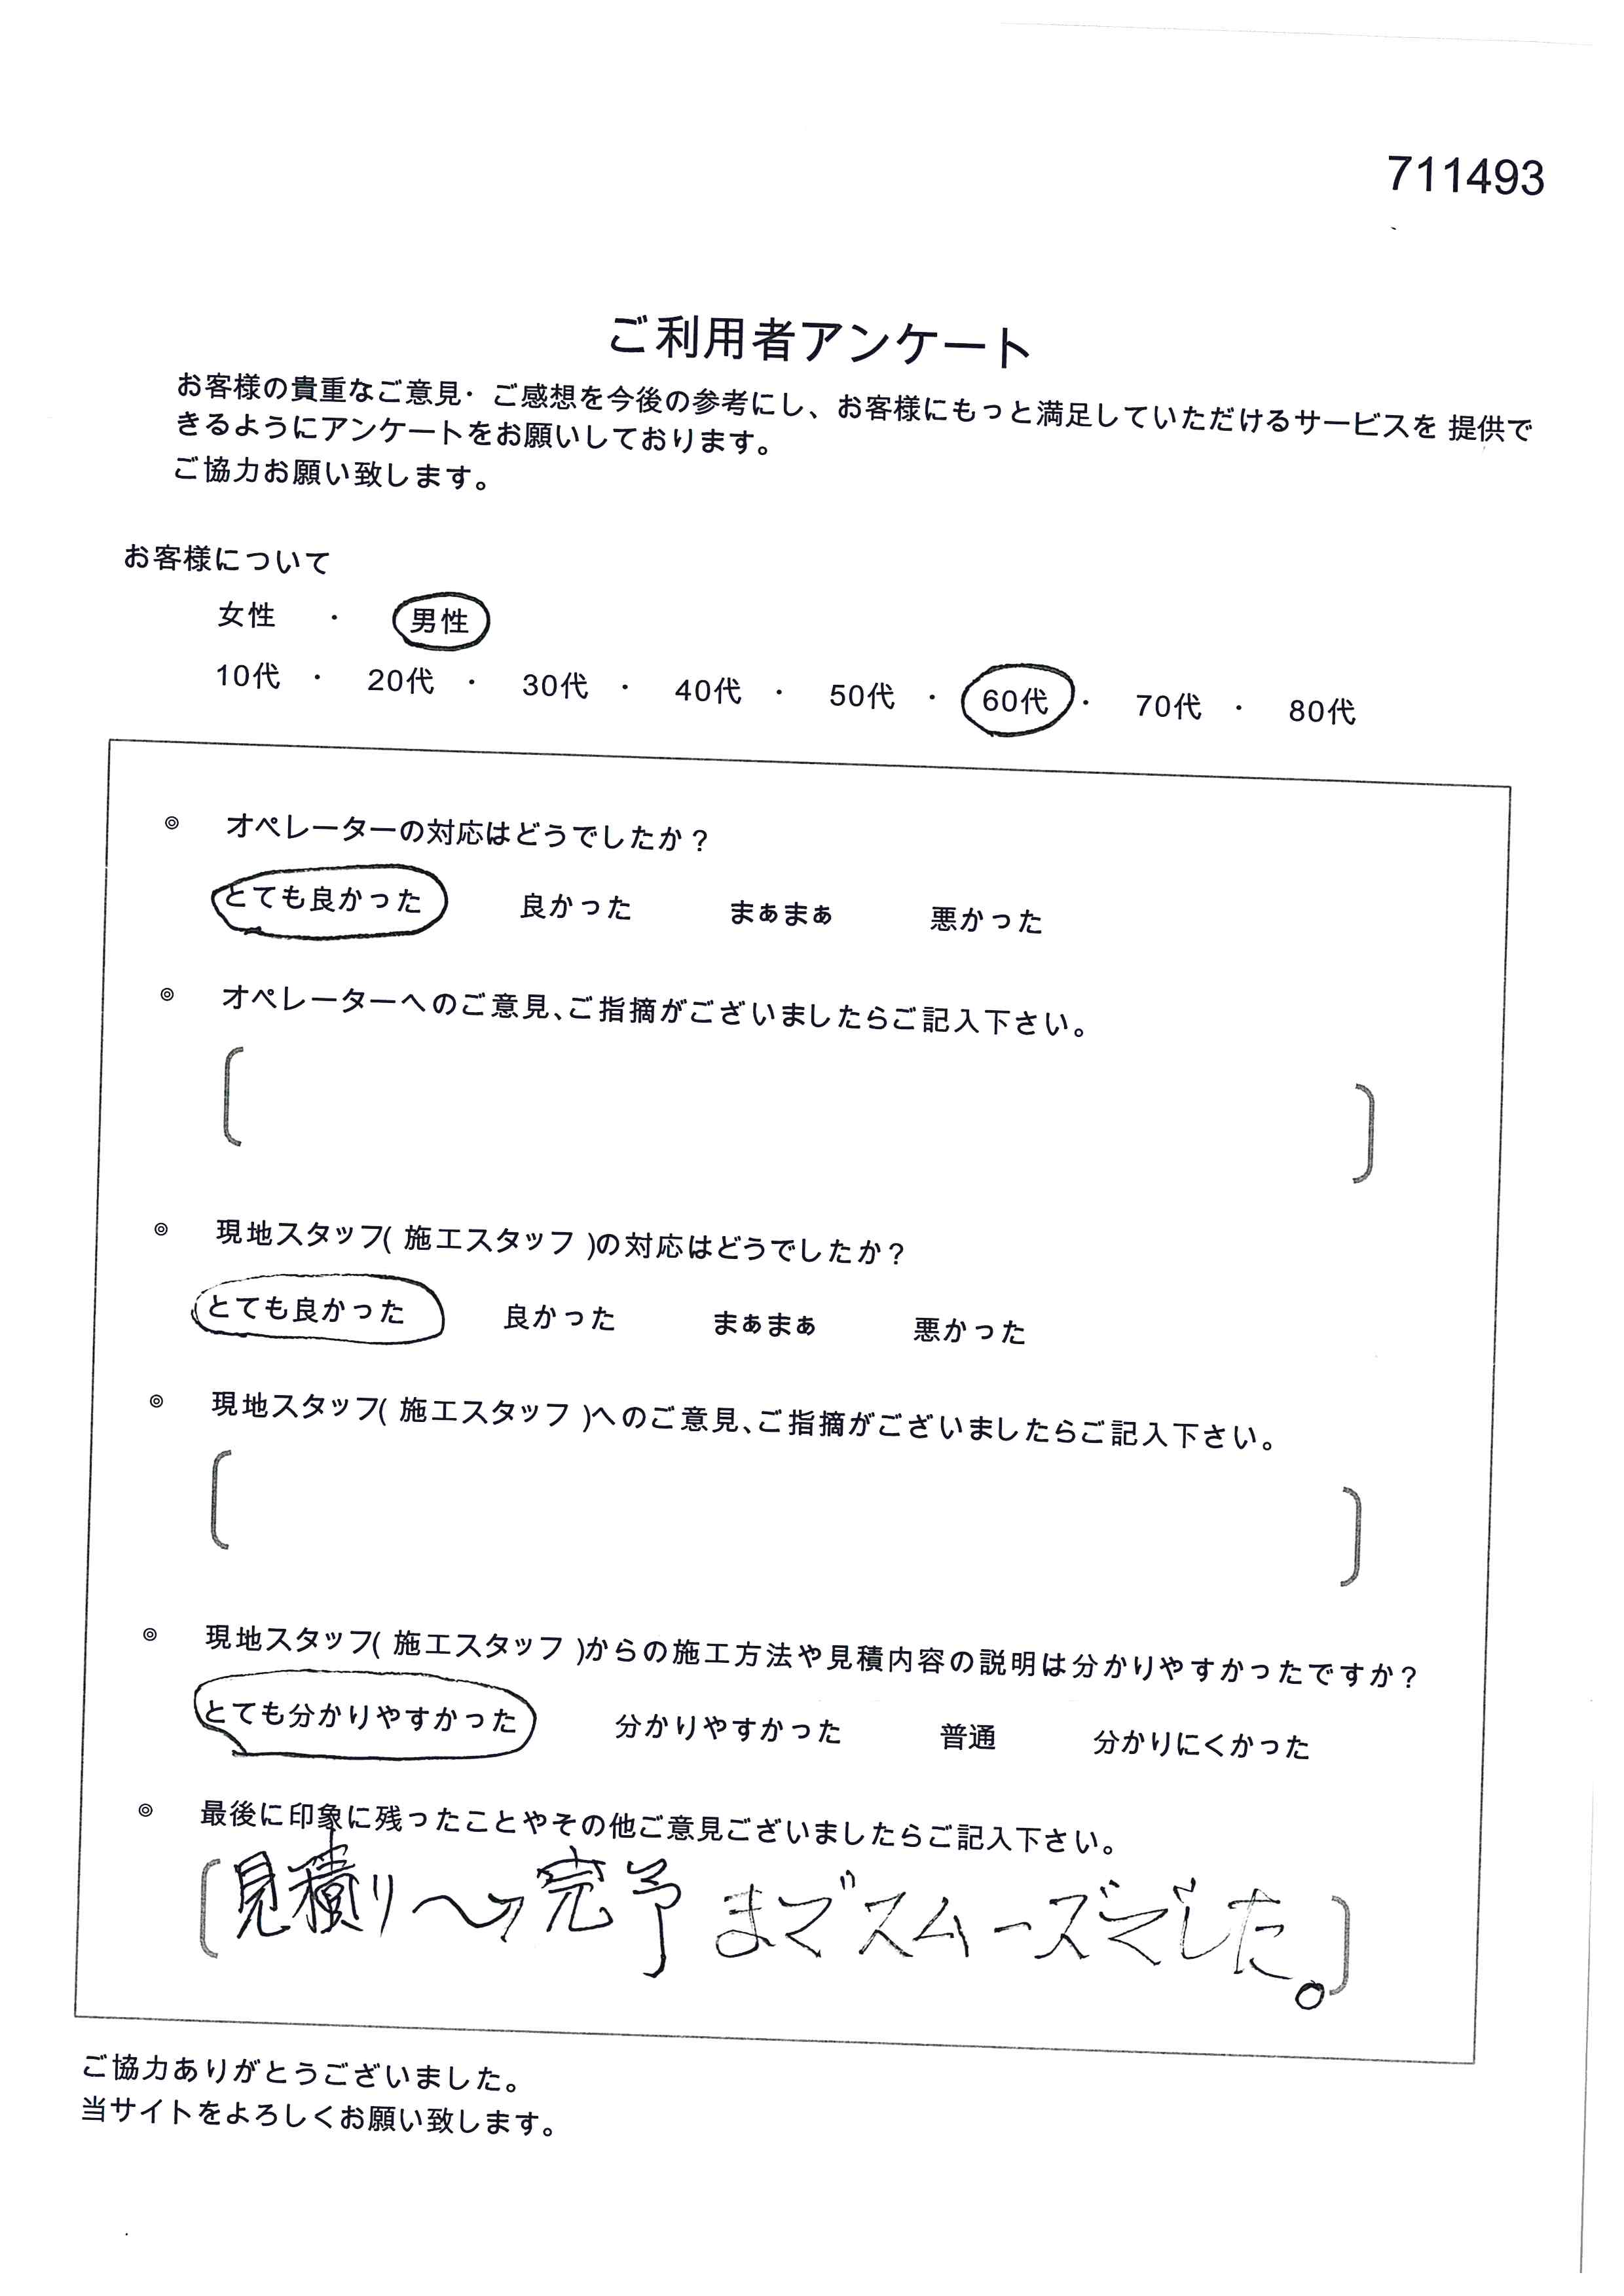 711493
ご利用者アンケート
お客様の貴重なご意見・ご感想を今後の参考にし、お客様にもっと満足していただけるサービスを 提供で
きるようにアンケートをお願いしております。
ご協力お願い致します。
お客様について
女性 ・ 男性
10代 ・ 20代 ・ 30代 ・ 40代 ・ 50代 ・ 60代 ・ 70代 ・ 80代
◎ オペレーターの対応はどうでしたか？
とても良かった 良かった まぁまぁ 悪かった
◎ オペレーターへのご意見、ご指摘がございましたらご記入下さい。
◎ 現地スタッフ( 施工スタッフ )の対応はどうでしたか？
とても良かった 良かった まぁまぁ 悪かった
◎ 現地スタッフ( 施工スタッフ )へのご意見、ご指摘がございましたらご記入下さい。
◎ 現地スタッフ( 施工スタッフ )からの施工方法や見積内容の説明は分かりやすかったですか？
とても分かりやすかった 分かりやすかった 普通 分かりにくかった
◎ 最後に印象に残ったことやその他ご意見ございましたらご記入下さい。
見積り〜→完予までスムーズでした。
ご協力ありがとうございました。
当サイトをよろしくお願い致します。